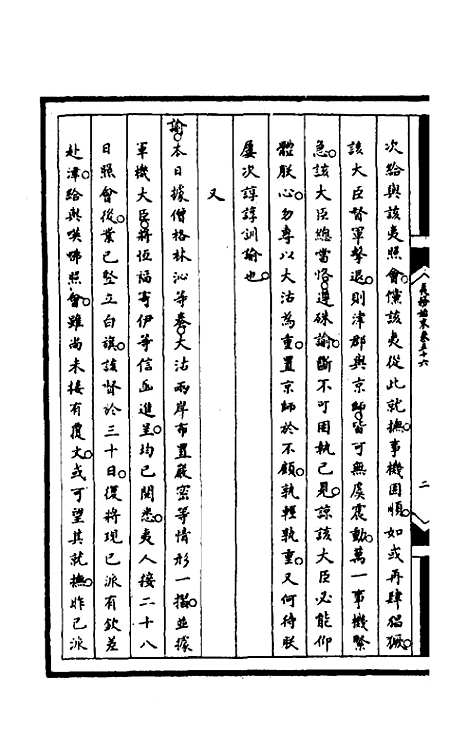 次給與該夷照會。儻該夷從此就撫。事機固順。如或再肆猖獗。
該大臣督軍擊退。則津郡與京師。皆可無虞震動。萬一事機緊
急。該大臣總當恪遵硃諭。斷不可固執己見。諒該大臣必能仰
體朕心。勿專以大沽為重。置京師於不顧。孰輕孰重。又何待朕
屢次諄諄訓諭也。
又
諭。本日據僧格林沁等奏。大沽兩岸布置嚴密等情形一摺。並據
軍機大臣。將恆福寄伊等信函進呈。均已閱悉。夷人接二十八
日照會後。業已豎立白旗。該督於三十日。復將現已派有欽差
赴津。給與㗆咈照會。雖尚未接有覆文。或可望其就撫。昨已派
夷務始末卷五十六
二